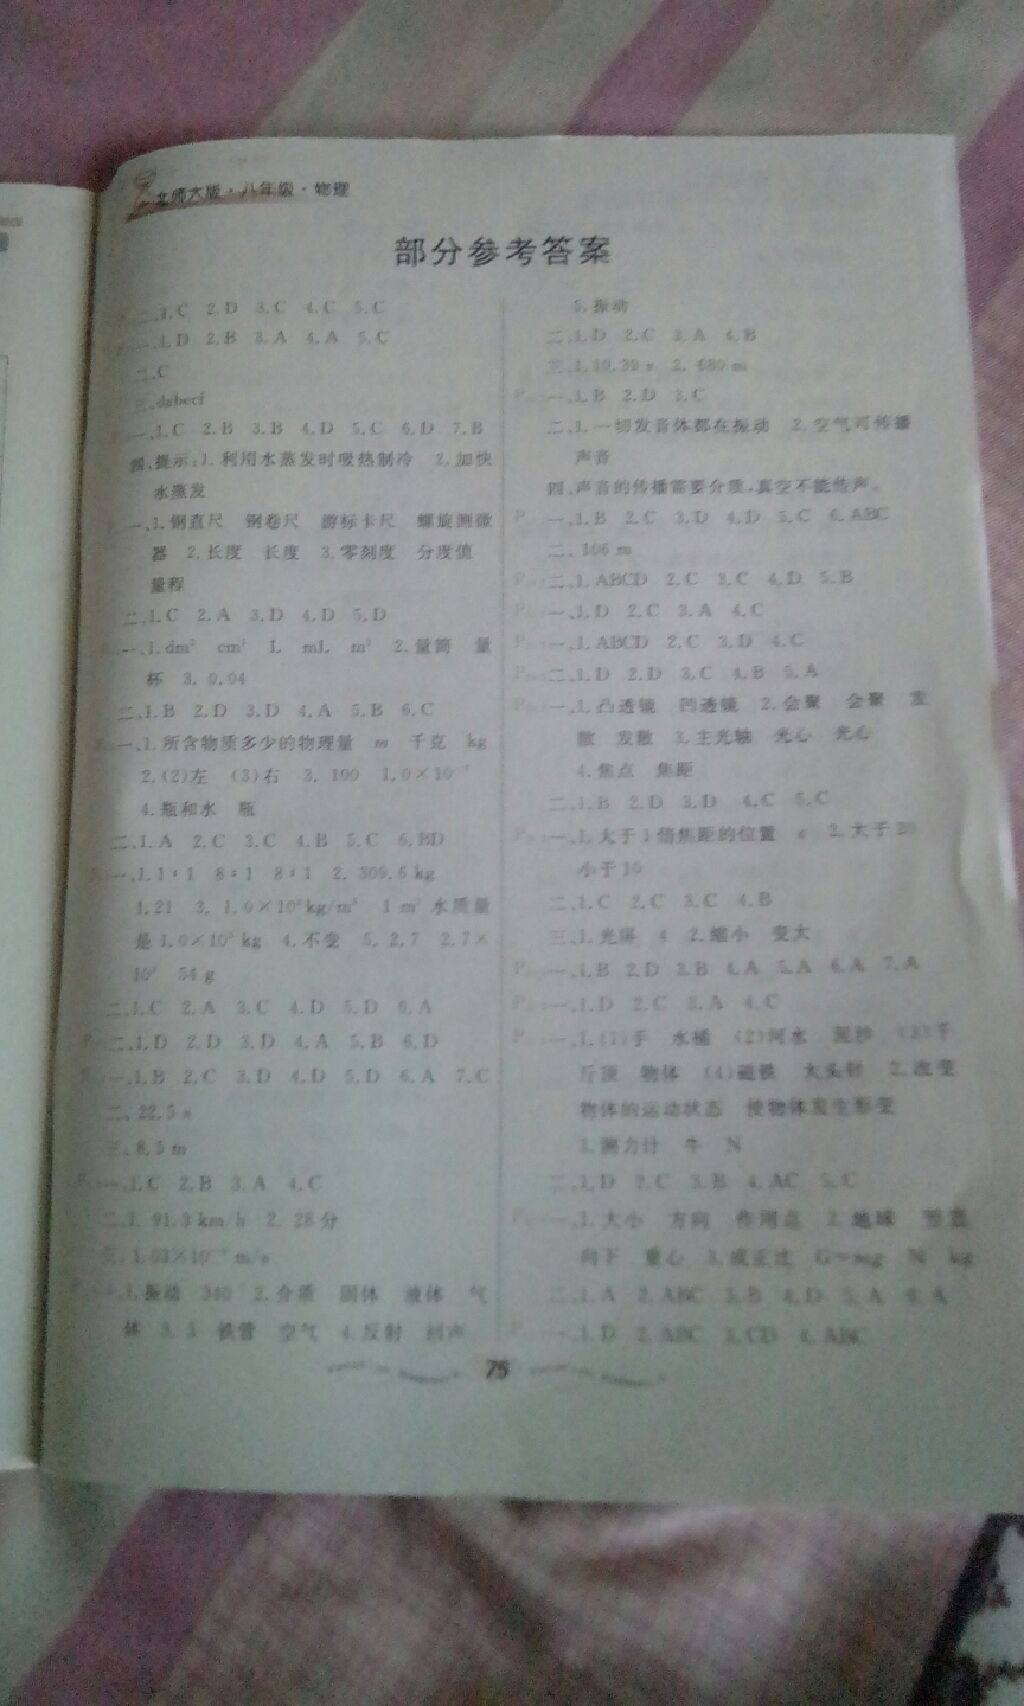 北师大版·八年级·物理
部分参考答案
二、1.C 2.D 3.C 4.C 5.C
一、1.D 2.B 3.A 4.A 5.C
二.C
三.dabecf
一、1.C 2.B 3.B 4.D 5.C 6.D 7.B
四.提示:1.利用水蒸发时吸热制冷 2.加快
水蒸发
一、1.钢直尺 钢卷尺 游标卡尺 螺旋测微
器 2.长度 长度 3.零刻度 分度值
量程
二、1.C 2.A 3.D 4.D 5.D
一、1.dm³ cm³ L mL m³ 2.量筒 量
杯 3.0.04
二、1.B 2.D 3.D 4.A 5.B 6.C
一、1.所含物质多少的物理量 m 千克 kg
2.(2)左 (3)右 3.100
4.瓶和水 瓶
二、1.A 2.C 3.C 4.B 5.C 6.BD
一、1.1:1 8:1 8:1 2.309.6 kg
4.21 3. 1.0×10³ kg/m³ 1 m³ 水质量
是 1.0×10³ kg 4.不变 5. 2.7 2.7×
10³ 54 g
二、1.C 2.A 3.C 4.D 5.D 6.A
二、1.D 2.D 3.D 4.A 5.B 6.D
一、1.B 2.C 3.D 4.D 5.D 6.A 7.C
二、22.5 s
三、8.5 m
一、1.C 2.B 3.A 4.C
二、1. 91.3 km/h 2. 28分
m/s
1.振动 340 2.介质 固体 液体 气
体 3. 3 铁管 空气 4.反射 回声
5.振动
二、1.D 2.C 3.A 4.B
三、2. 680 m
一、1.B 2.D 3.C
二、1.一切发音体都在振动 2.空气可传播
声音
四.声音的传播需要介质,真空不能传声。
一、1.B 2.C 3.D 4.D 5.C 6.ABC
二、106 m
二、1.ABCD 2.C 3.C 4.D 5.B
一、1.D 2.C 3.A 4.C
一、1.ABCD 2.C 3.D 4.C
二、1.D 2.D 3.C 4.B 5.A
一、1.凸透镜 凹透镜 2.会聚 会聚 发
散 发散 3.主光轴 光心 光心
4.焦点 焦距
二、1.B 2.D 3.D 4.C 5.C
一、1.大于1倍焦距的位置 c 2.大于20
小于10
二、1.C 2.C 3.C 4.B
三、1.光屏 4 2.缩小 变大
一、1.B 2.D 3.B 4.A 5.A 6.A 7.A
一、1.D 2.C 3.A 4.C
一、1.(1)手 水桶 (2)河水 泥沙 (3)千
斤顶 物体 (4)磁铁 大头针 2.改变
物体的运动状态 使物体发生形变
3.测力计 牛 N
二、1.D 2.C 3.B 4.AC 5.C
一、1.大小 方向 作用点 2.地球 竖直
向下 重心 3.成正比 G=mg N kg
二、1.A 2.ABC 3.B 4.D 5.A 6.A
一、1.D 2.ABC 3.CD 4.ABC
75